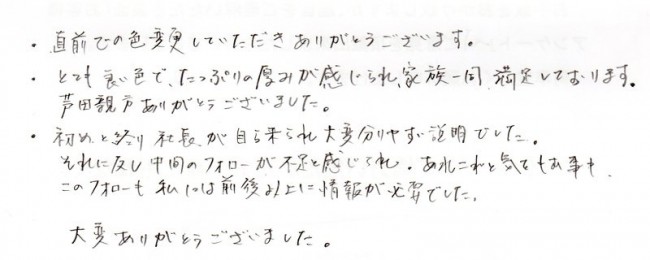 ・直前での色変更していただきありがとうございます。
・とても良い色で、たっぷりの厚みが感じられ、家族一同、満足しております。
芦田親方ありがとうございました。
・初めと終り 社長が自ら来られ大変分りやすい説明でした。
それに反し中間のフォローが不足と感じられ、あれこれと気をもむ事も
このフォローも私には前後以上に情報が必要でした。
大変ありがとうございました。